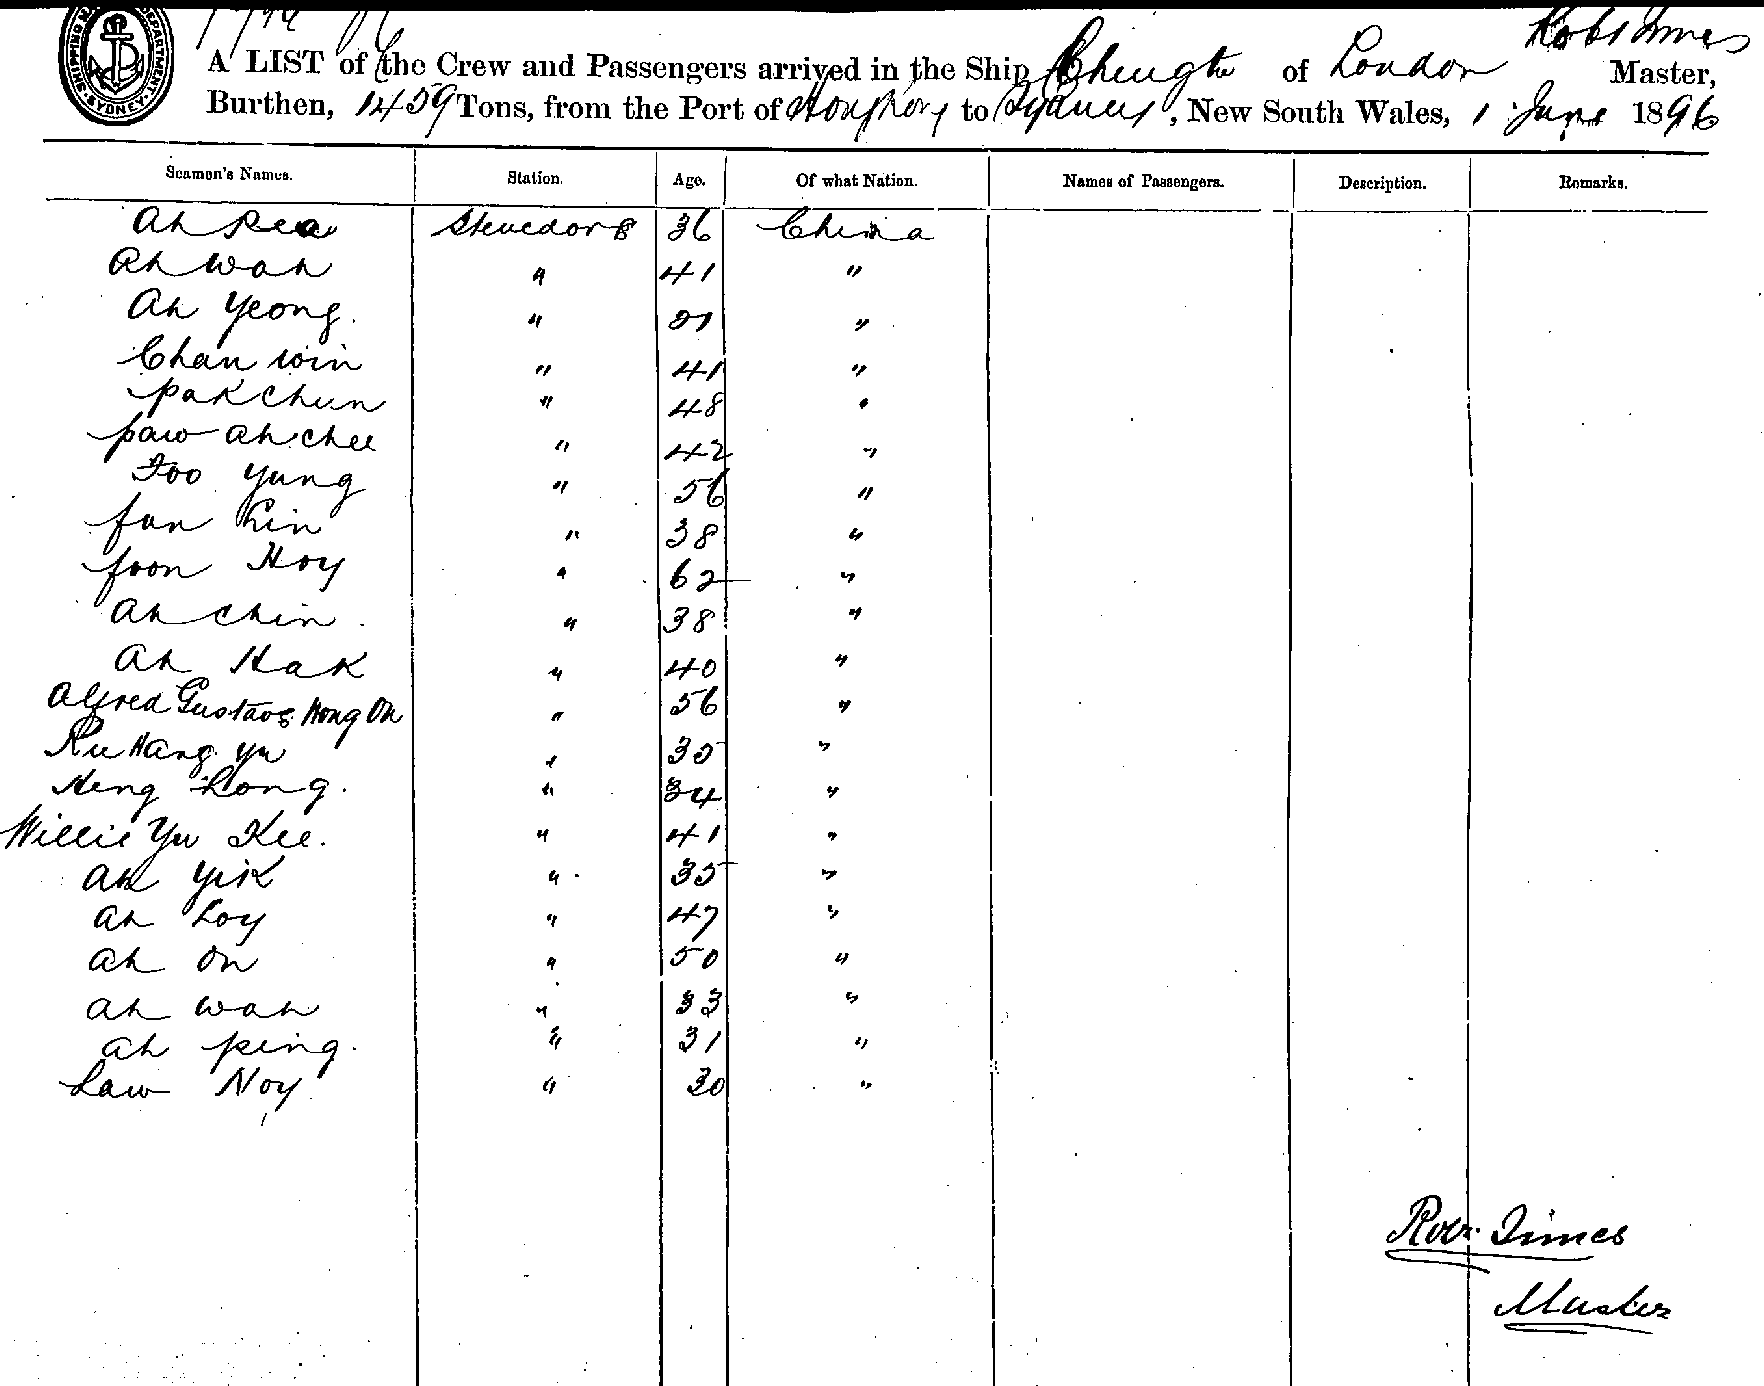 SHIPPING MA DEPARTMENT SYDNEY
A LIST of the Crew and Passengers arrived in the Ship of London Robt Innes Master,
Burthen, 1459 Tons, from the Port of Hongkong to Sydney, New South Wales, 1 June 1896
Seamen's Names. Station. Age. Of what Nation. Names of Passengers. Description. Remarks.
Ah 36 China
Ah Wah " 41 "
Ah Yeong. "  "
Chan Win " 41 "
Pak Chun " 48 "
Paw Ah Chee " 42 "
Foo Yung " 56 "
Fun Lin " 38 "
Foon Hoy " 62 "
Ah Chin " 38 "
Ah Hak " 40 "
Alfred Gustavs Hong On " 56 "
Hang Yu " 35 "
Heng Long. " 34 "
Willie Yu Kee. " 41 "
Ah Yik " 35 "
Ah Loy " 47 "
Ah On " 50 "
Ah Wah " 33 "
Ah Ping. " 31 "
Law Noy " 30 "
Robt Innes
Master